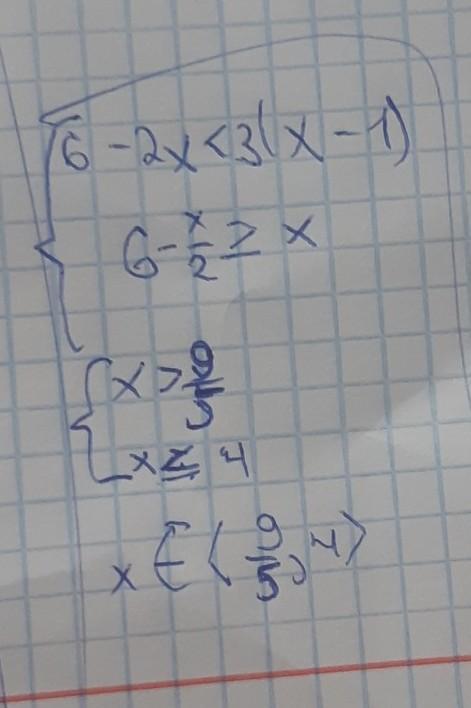 { 6 - 2x < 3(x - 1)
6 - x/2 ≥ x
{ x > 9/5
x ≤ 4
x ∈ ⟨9/5; 4⟩